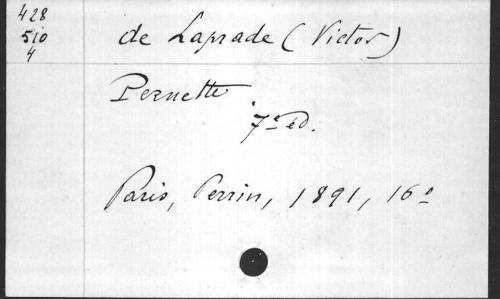 428
510
4
de Laprade (Victor)
Pernette
7e éd.
Paris, Perrin, 1891, 16o